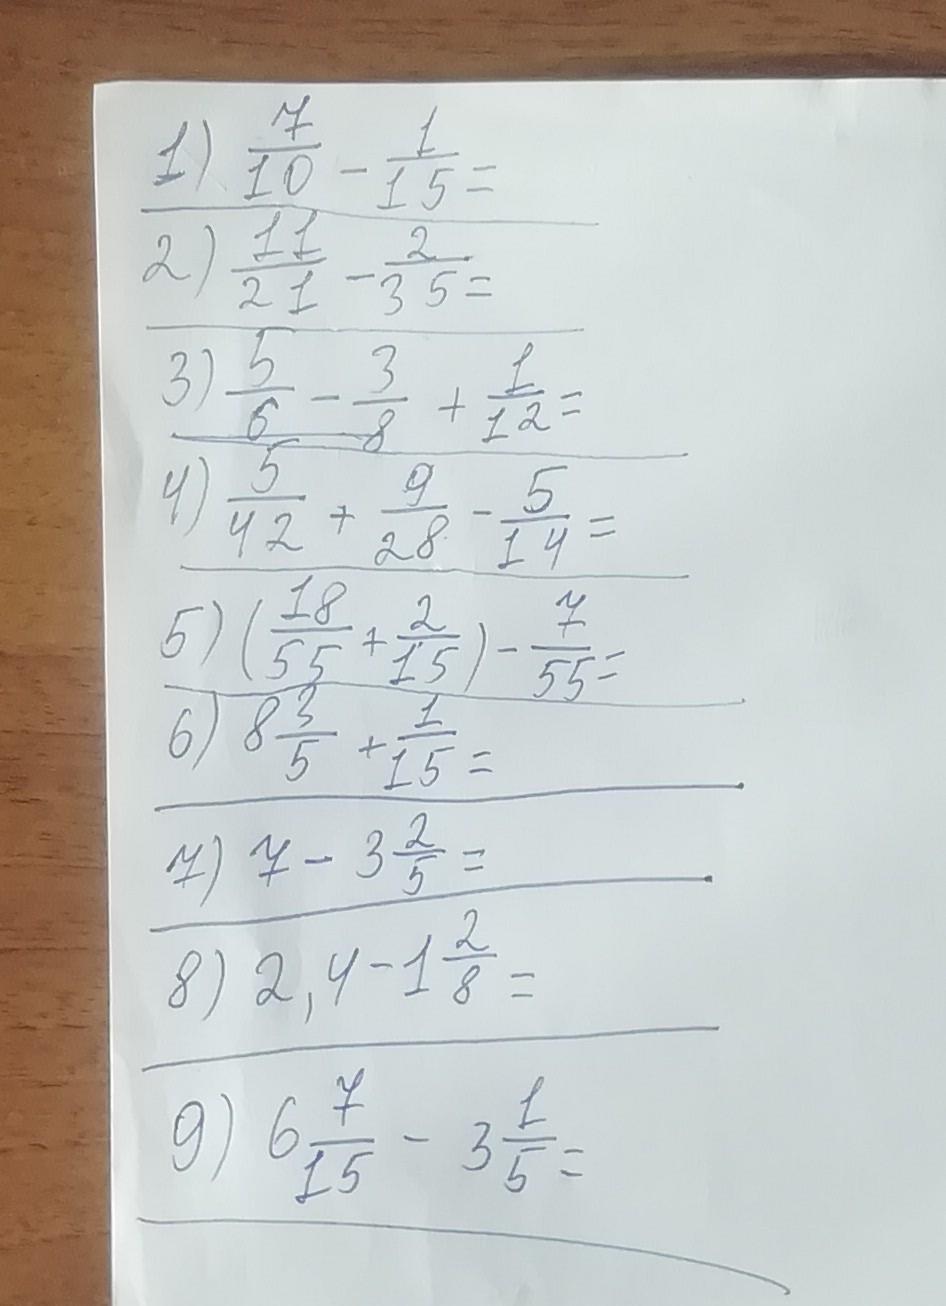 1) 7/10 - 1/15 =
2) 11/21 - 2/35 =
3) 5/6 - 3/8 + 1/12 =
4) 5/42 + 9/28 - 5/14 =
5) (18/55 + 2/15) - 7/55 =
6) 8 3/5 + 1/15 =
7) 7 - 3 2/5 =
8) 2,4 - 1 2/8 =
9) 6 7/15 - 3 1/5 =